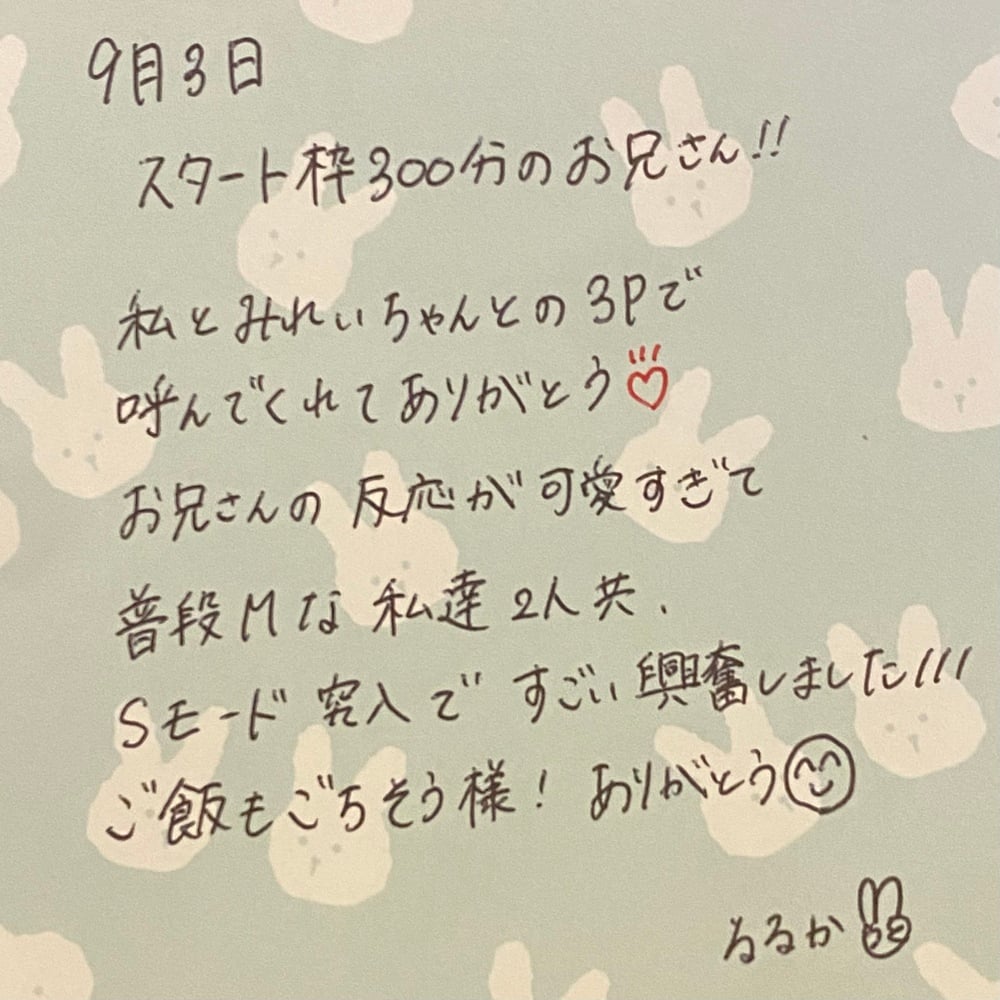 9月3日
スタート枠300分のお兄さん!!
私とみれいちゃんとの3Pで
呼んでくれてありがとう♡
お兄さんの反応が可愛すぎて
普段Mな私達2人共、
Sモード突入ですごい興奮しました///
ご飯もごちそう様!ありがとう
るるか